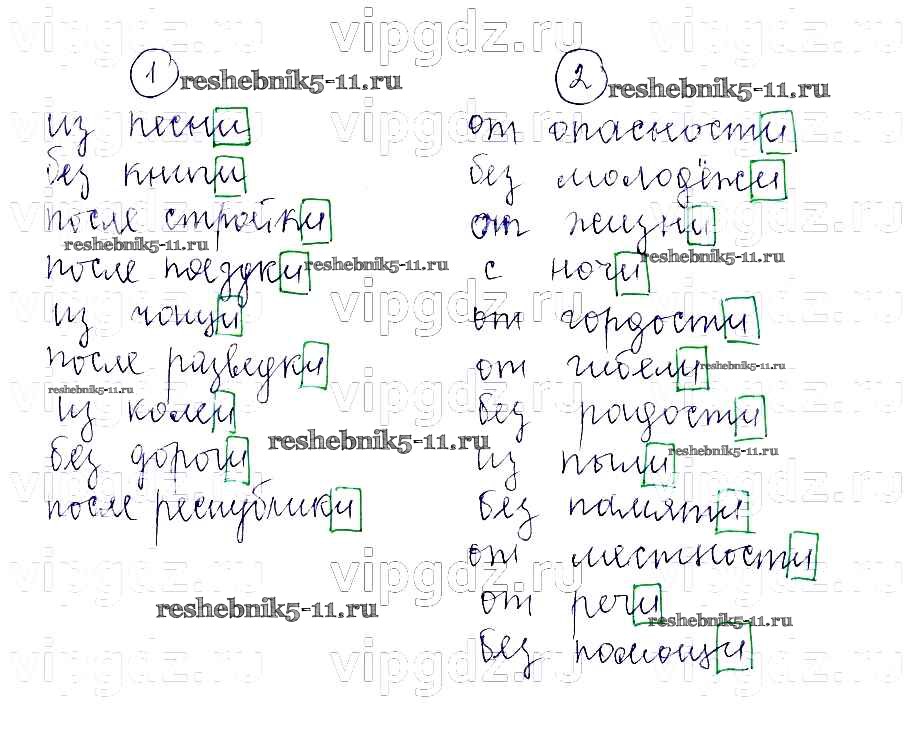 vipgdz.ru vipgdz.ru vipgdz.ru
1 reshebnik5-11.ru
из песни
без книги
после стройки
reshebnik5-11.ru
после поездки
reshebnik5-11.ru
из чащи
после разведки
reshebnik5-11.ru
из колеи
reshebnik5-11.ru
без дороги
после республики
reshebnik5-11.ru
2 reshebnik5-11.ru
от опасности
без молодёжи
от жизни
reshebnik5-11.ru
с ночи
от гордости
от гибели
reshebnik5-11.ru
без радости
reshebnik5-11.ru
из пыли
без памяти
от местности
от речи
reshebnik5-11.ru
без помощи